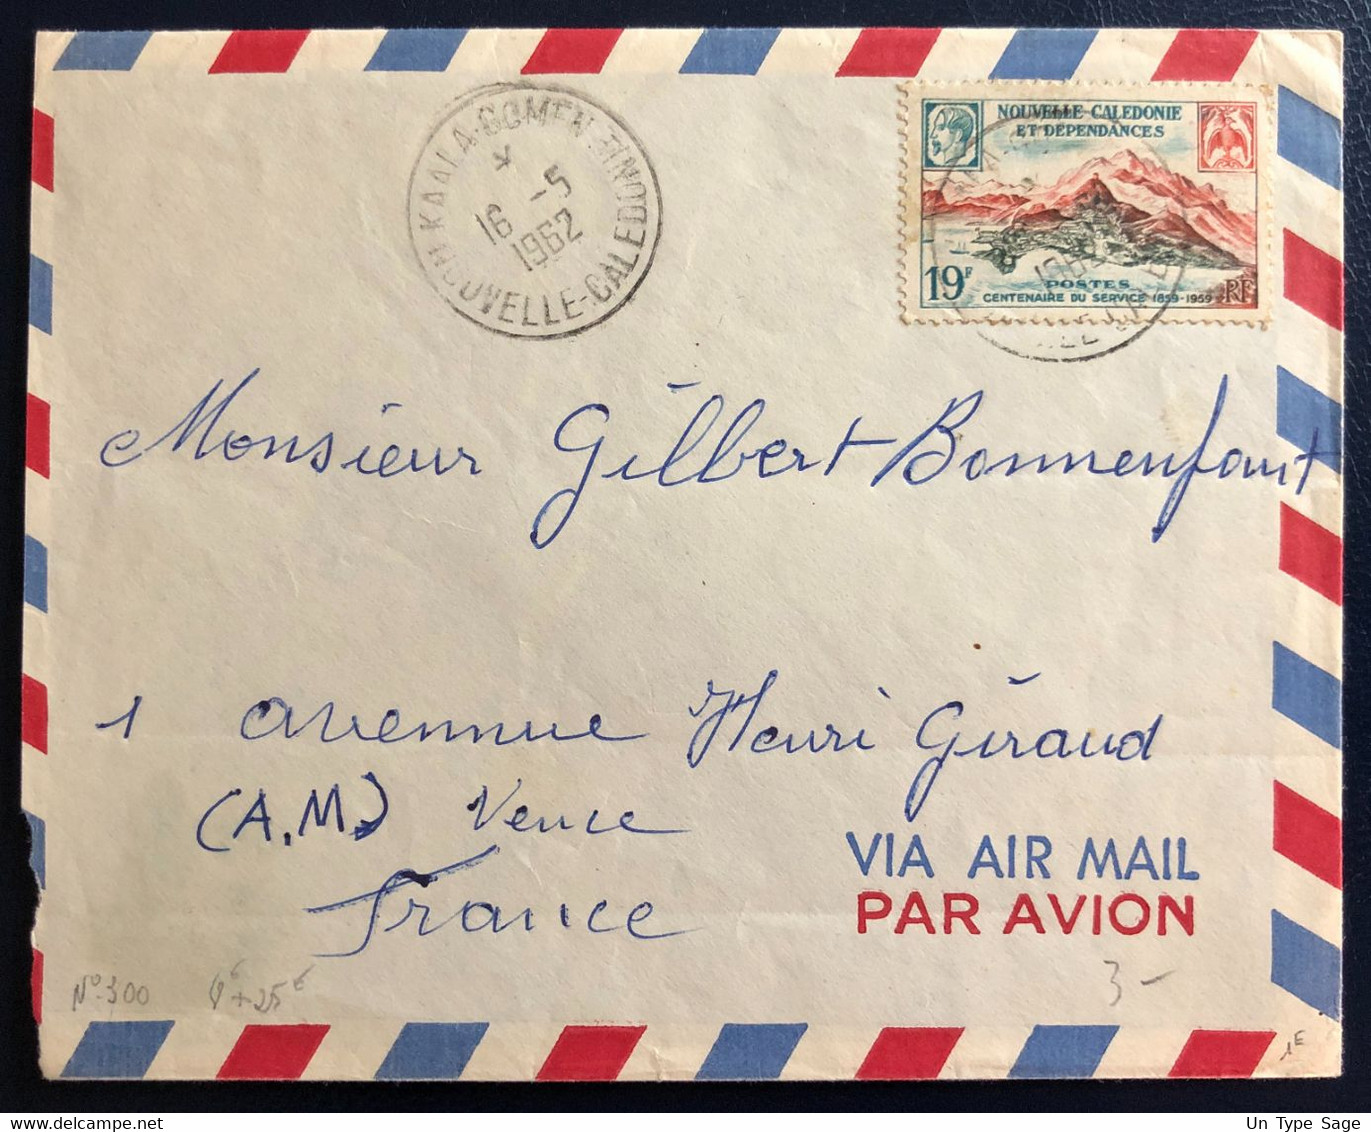 KAALA-GOMEN
16 -5
1962
NOUVELLE-CALEDONIE
NOUVELLE-CALEDONIE
ET DEPENDANCES
19F
POSTES
CENTENAIRE DU SERVICE 1859-1959
RF
Monsieur Gilbert Bonnenfant
1 avenue Henri Giraud
(A.M.) Vence
France
VIA AIR MAIL
PAR AVION
N° 300
3 -
1E
Un Type Sage